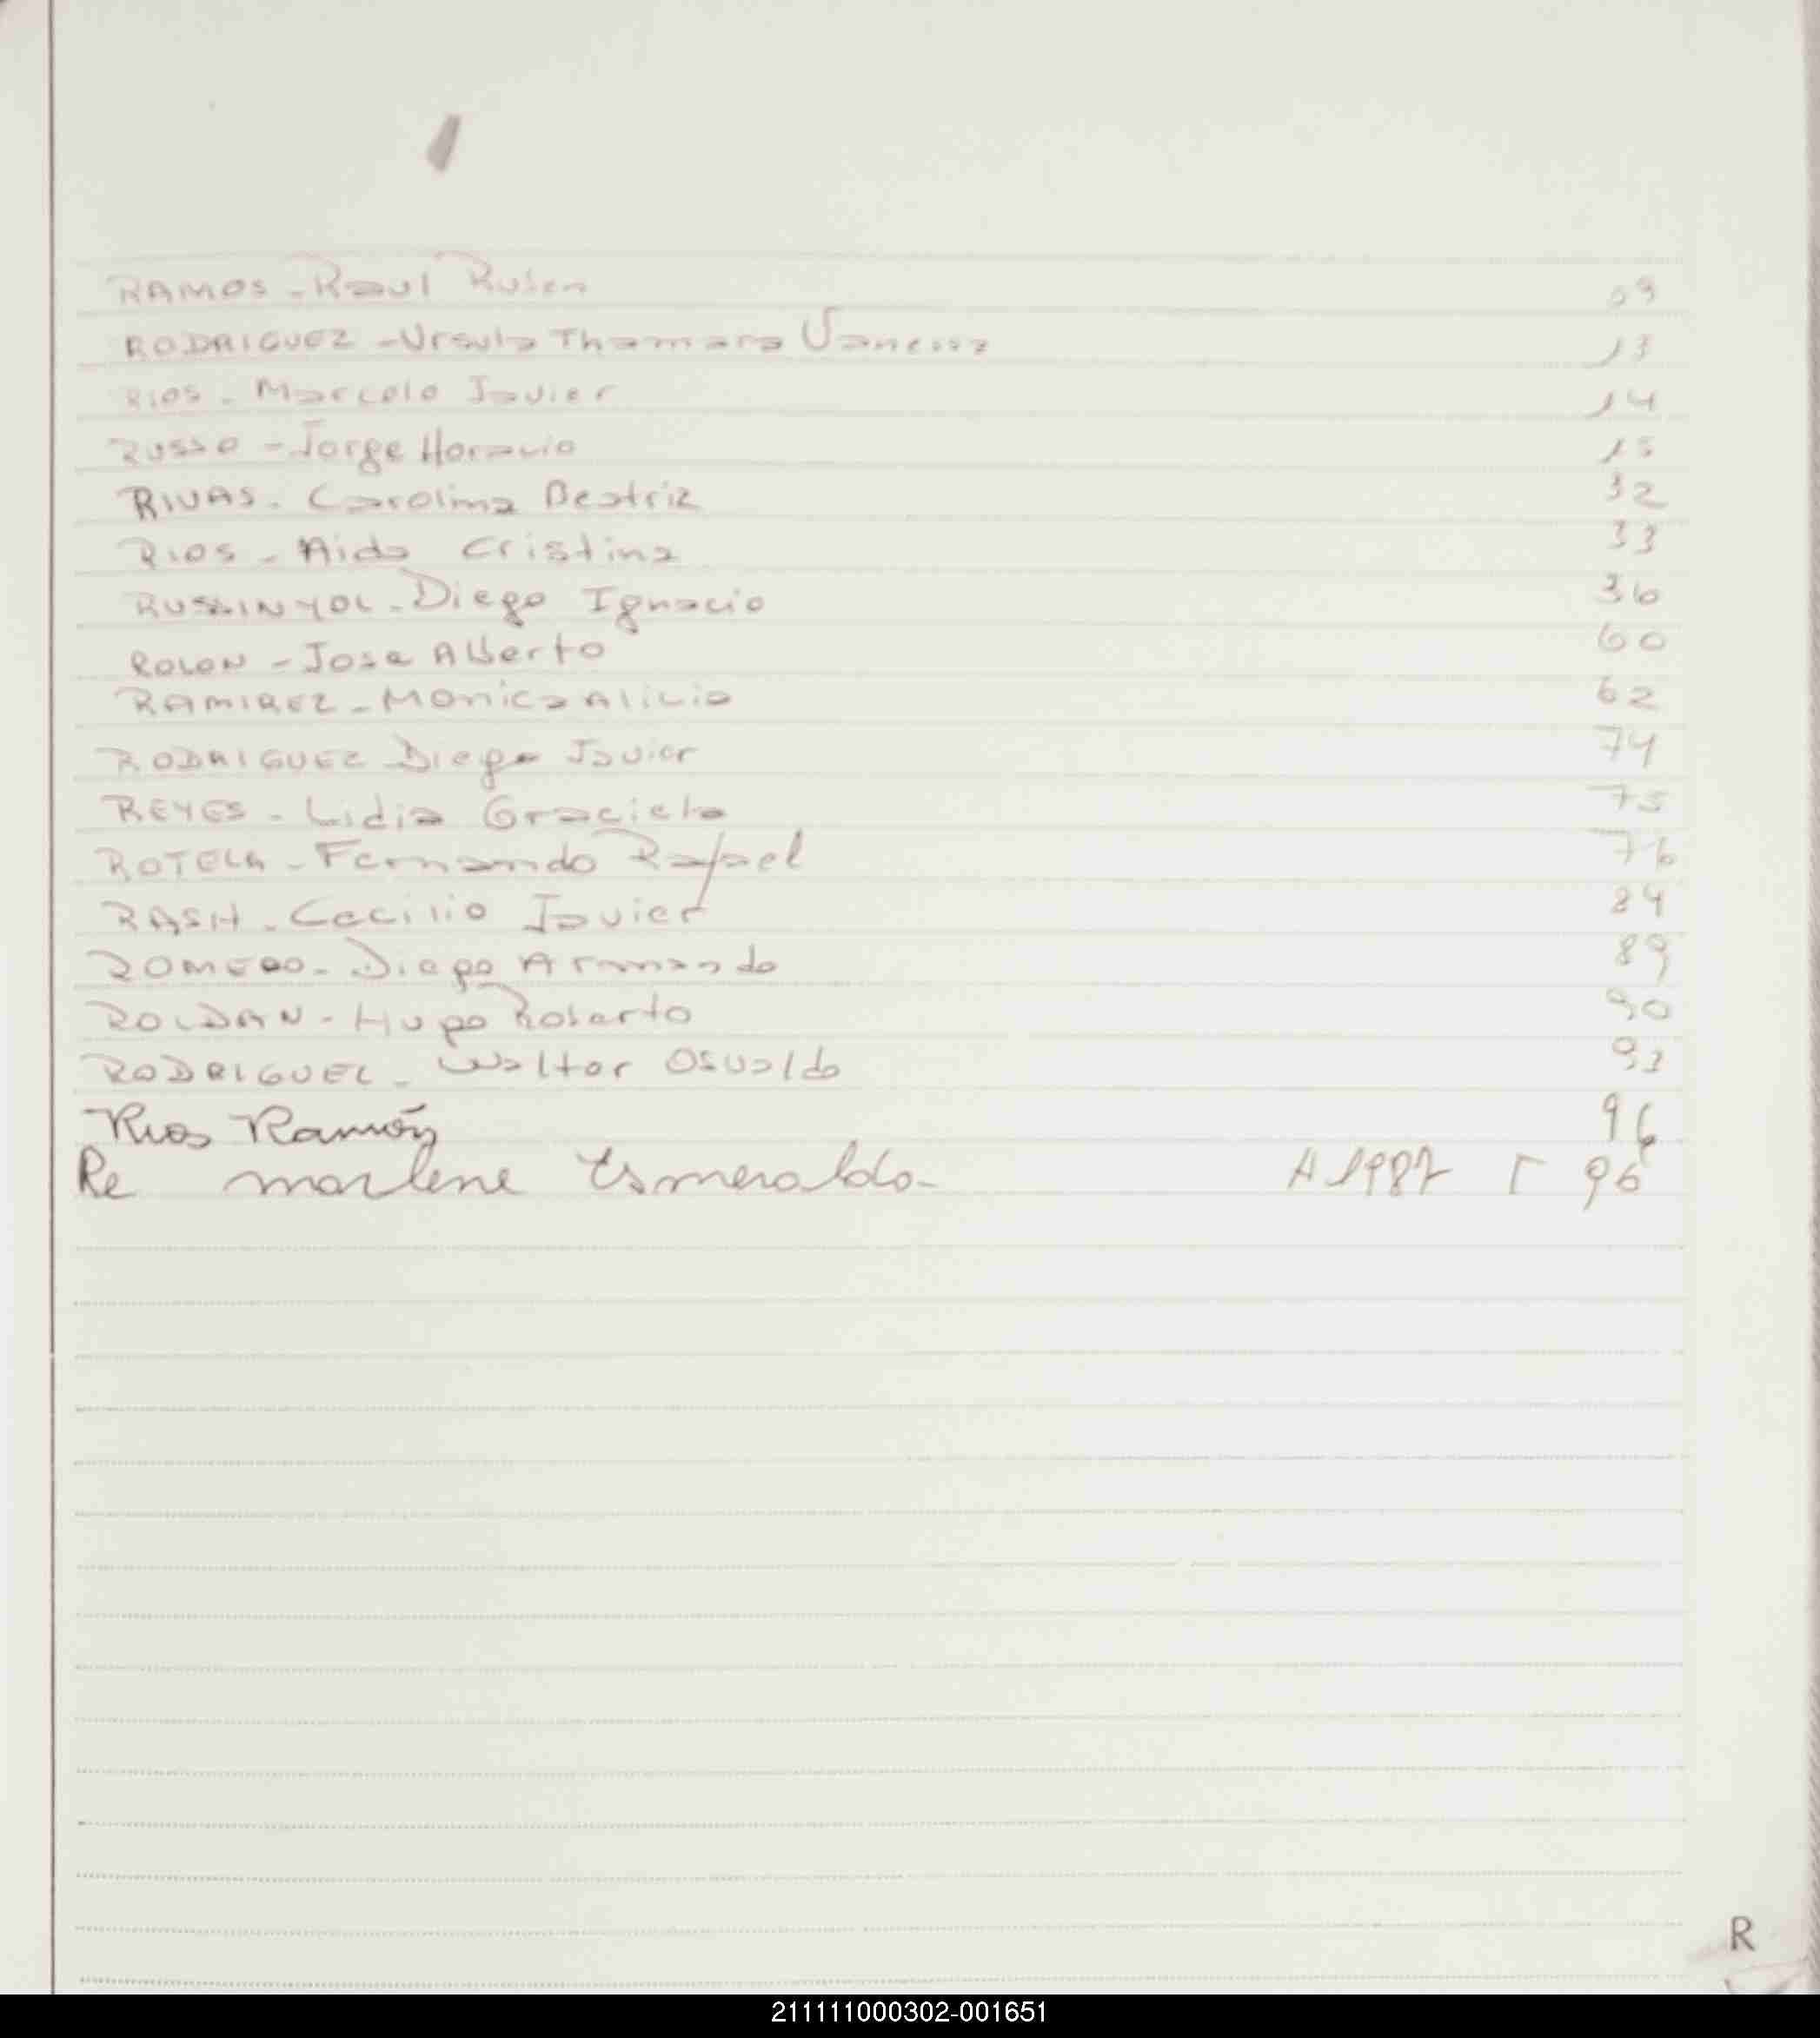 RAMOS - Raul Ruben 09
RODRIGUEZ - Ursula Thamara Vanessa 13
RIOS - Marcelo Javier 14
RUSSO - Jorge Horacio 15
RIVAS - Carolina Beatriz 32
RIOS - Aida Cristina 33
RUSSINYOL - Diego Ignacio 36
ROLON - Jose Alberto 60
RAMIREZ - Monica Alicia 62
RODRIGUEZ Diego Javier 74
REYES - Lidia Graciela 75
ROTELA - Fernando Rafael 76
RASH - Cecilio Javier 84
ROMERO - Diego Armando 89
ROLDAN - Hugo Roberto 90
RODRIGUEZ - Walter Osvaldo 93
Rios Ramón 96
Re marlene Esmeralda - A 1987 F 96
R
211111000302-001651